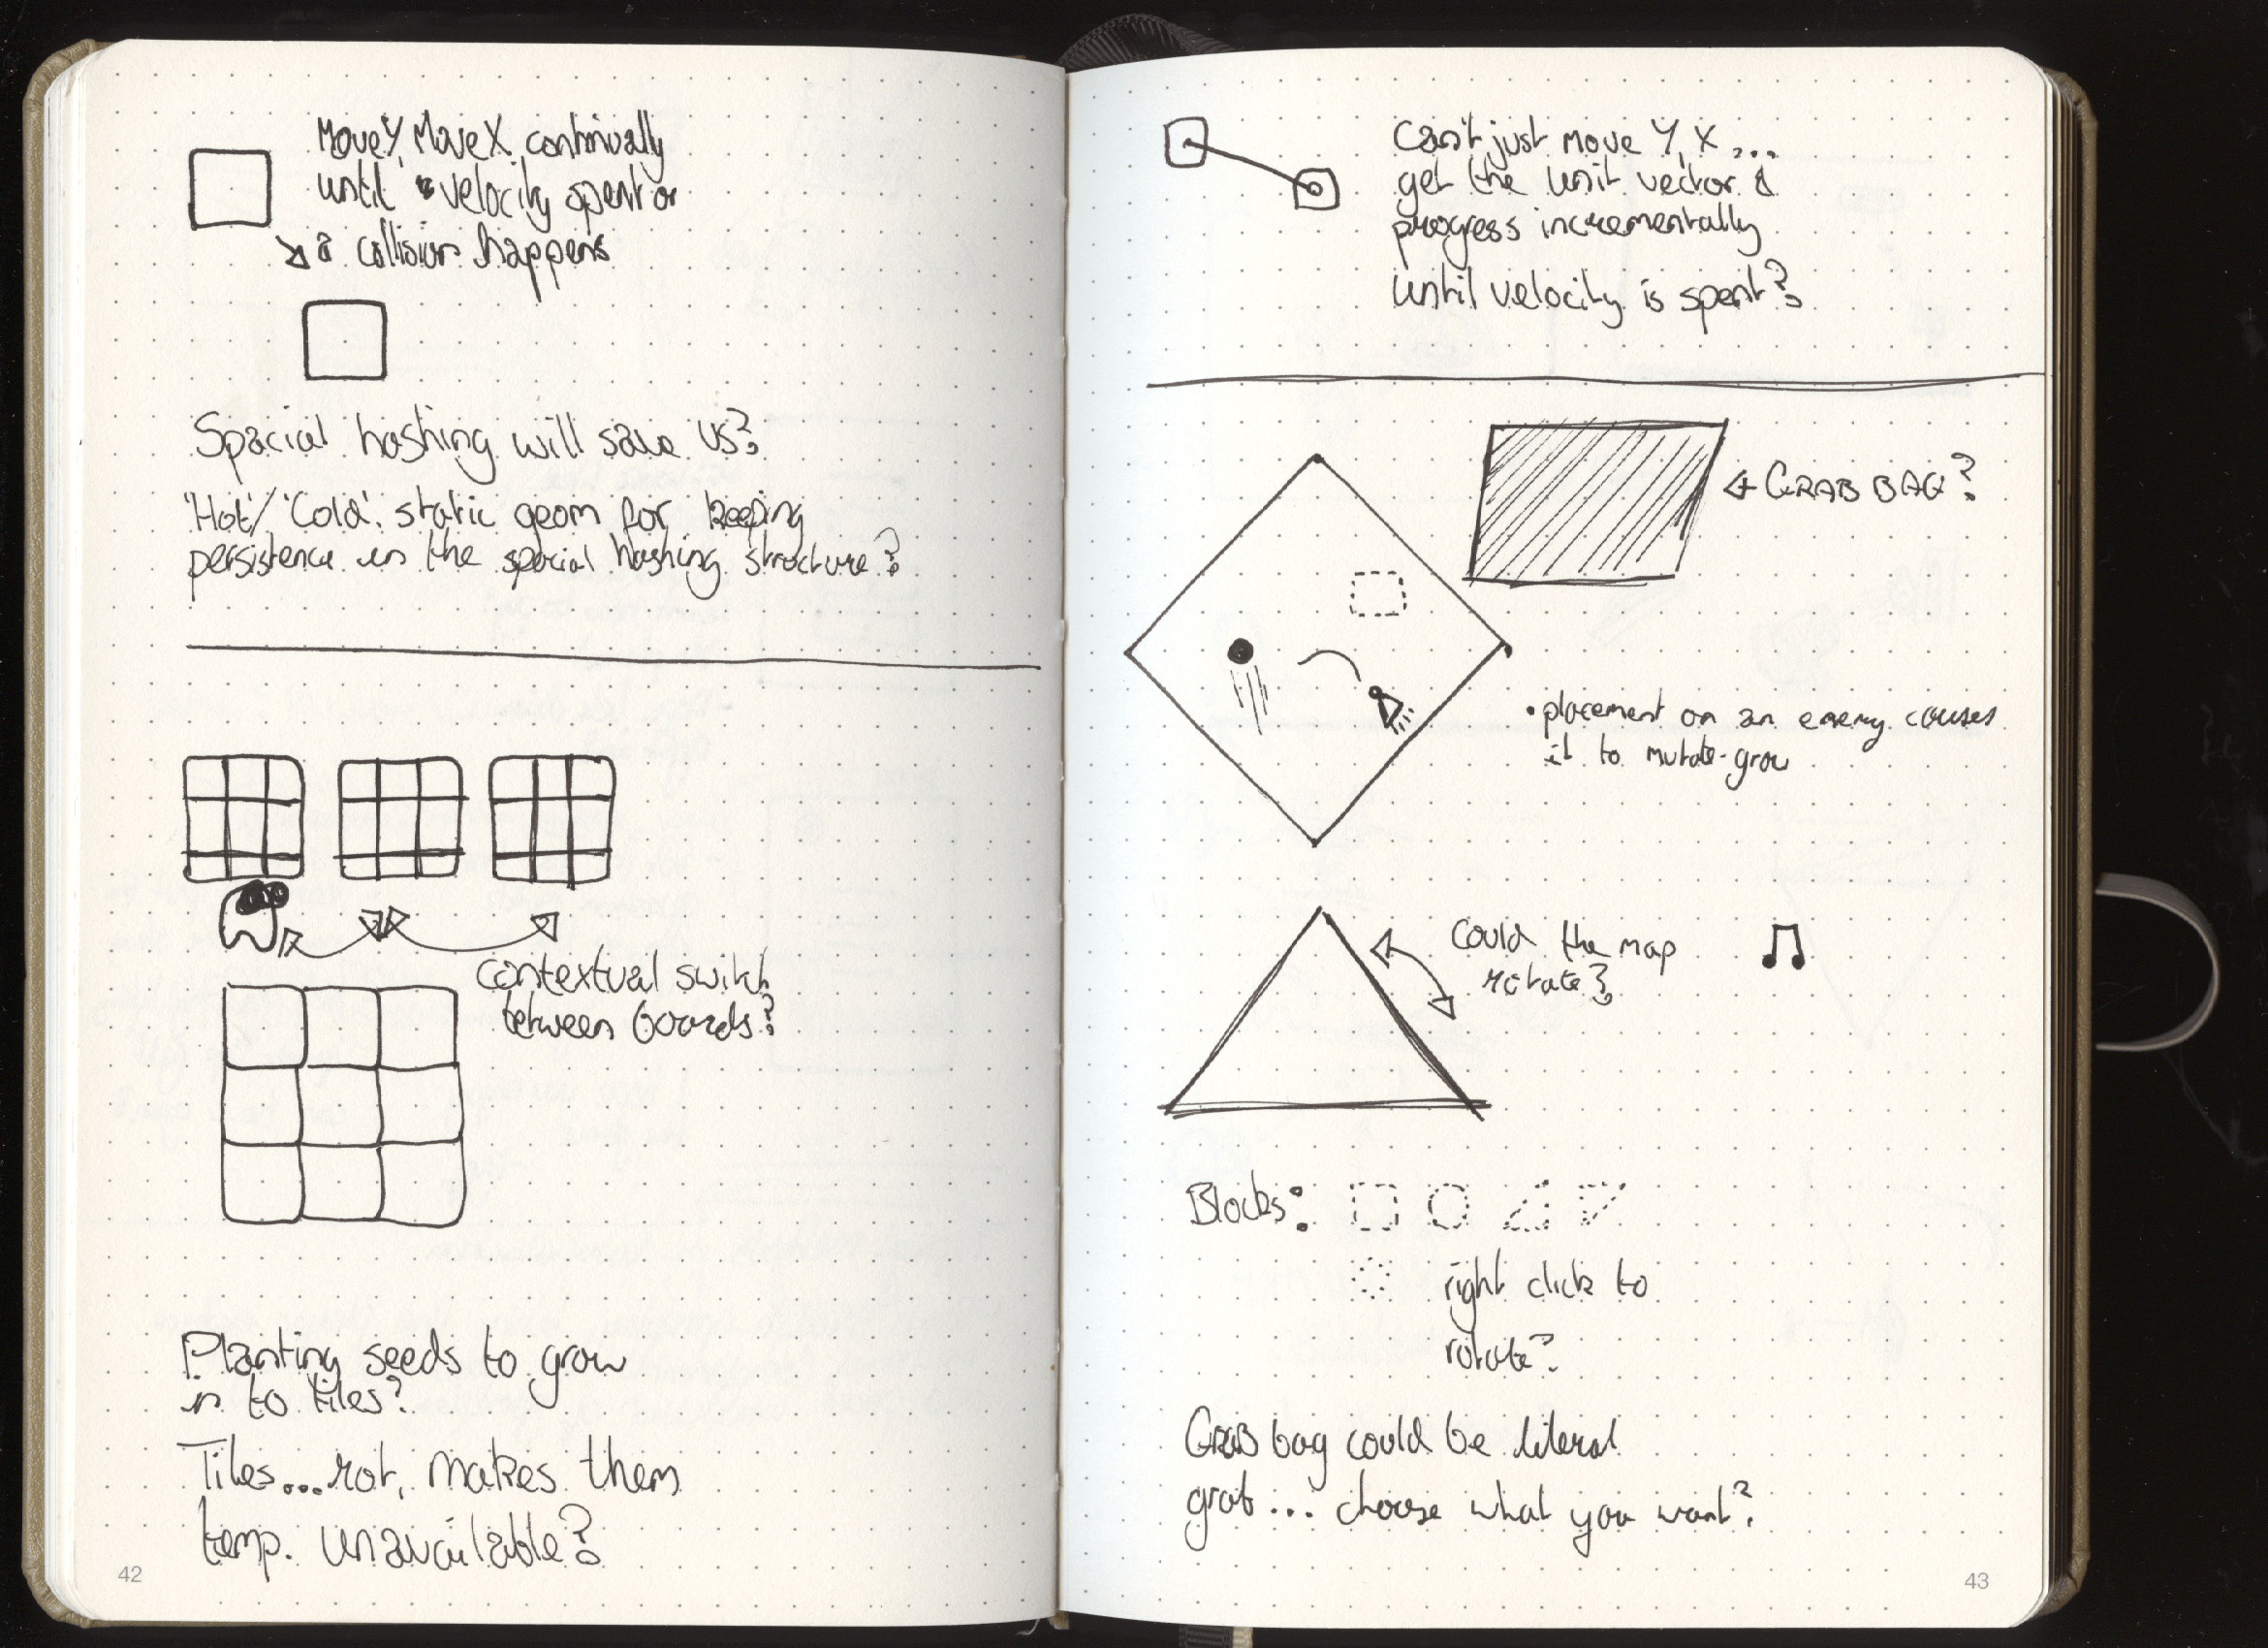 MoveY, MoveX continually
until velocity spent or
a collision happens
Spacial hashing will save us?
'Hot'/'Cold'. static geom for keeping
persistence in the spacial hashing structure?
contextual switch
between boards?
Planting seeds to grow
in to tiles?
Tiles...rot, makes them
temp. unavailable?
42
Can't just move Y, X ...
get the unit vector &
progress incrementally
until velocity is spent?
GRAB BAG?
• placement on an enemy causes
it to mutate-grow
Could the map
rotate?
Blocks:
right click to
rotate?
GRAB bag could be literal
grab... choose what you want?
43